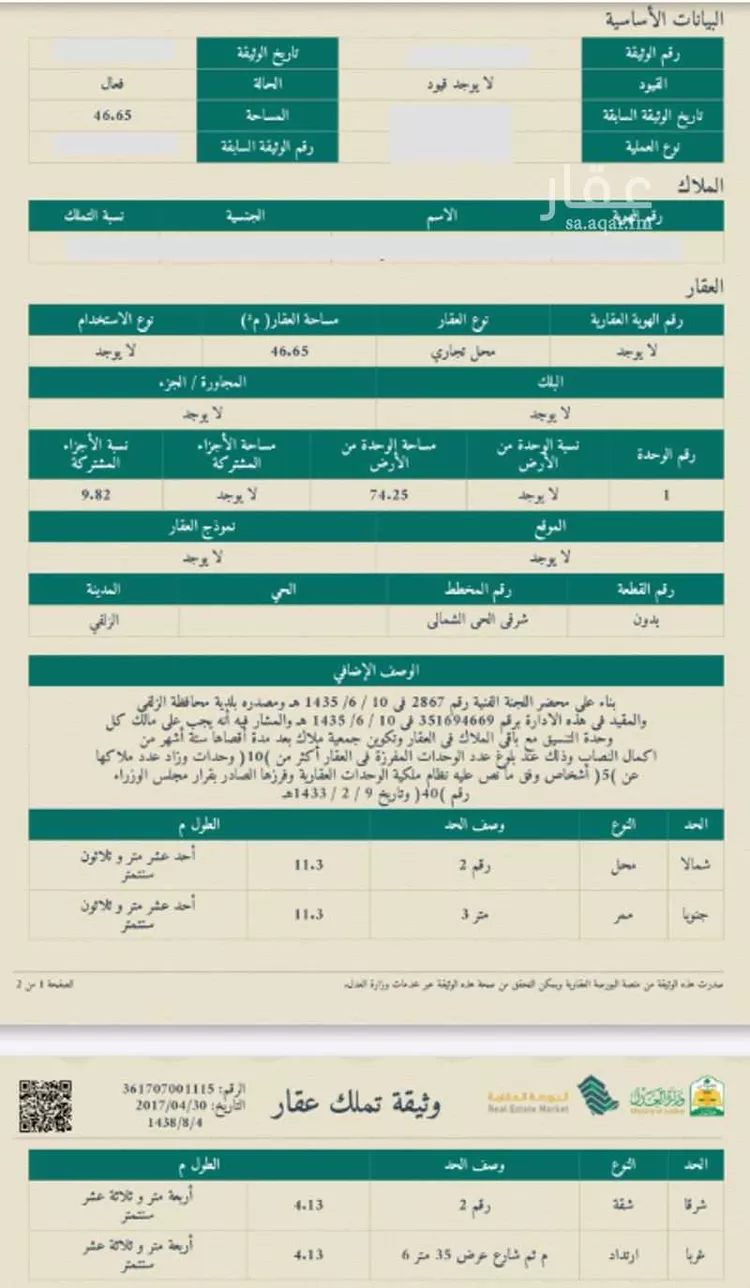 البيانات الأساسية
رقم الوثيقة تاريخ الوثيقة
القيود لا يوجد قيود الحالة فعال
تاريخ الوثيقة السابقة المساحة 46.65
نوع العملية رقم الوثيقة السابقة
الملاك
عقار
sa.aqar.fm
رقم الهوية الاسم الجنسية نسبة التملك
العقار
رقم الهوية العقارية نوع العقار مساحة العقار( م²) نوع الاستخدام
لا يوجد محل تجاري 46.65 لا يوجد
البلك المجاورة / الجزء
لا يوجد لا يوجد
رقم الوحدة نسبة الوحدة من الأرض مساحة الوحدة من الأرض مساحة الأجزاء المشتركة نسبة الأجزاء المشتركة
1 لا يوجد 74.25 لا يوجد 9.82
الموقع نموذج العقار
لا يوجد لا يوجد
رقم القطعة رقم المخطط الحي المدينة
بدون شرقى الحى الشمالى الزلفي
الوصف الإضافي
بناء على محضر اللجنة الفنية رقم 2867 فى 10 / 6/ 1435 هـ ومصدره بلدية محافظة الزلفي
والمقيد في هذه الادارة برقم 351694669 فى 10 / 6/ 1435 هـ والمشار فيه أنه يجب على مالك كل
وحدة التنسيق مع باقي الملاك في العقار وتكوين جمعية ملاك بعد مدة أقصاها ستة أشهر من
اكمال النصاب وذلك عند بلوغ عدد الوحدات المفرزة فى العقار أكثر من )10( وحدات وزاد عدد ملاكها
عن )5( أشخاص وفق ما نص عليه نظام ملكية الوحدات العقارية وفرزها الصادر بقرار مجلس الوزراء
رقم )40( وتاريخ 9 / 2 / 1433هـ
الحد النوع وصف الحد الطول م
شمالا محل رقم 2 11.3 أحد عشر متر و ثلاثون سنتمتر
جنوبا ممر متر 3 11.3 أحد عشر متر و ثلاثون سنتمتر
صدرت هذه الوثيقة من منصة البورصة العقارية ويمكن التحقق من صحة هذه الوثيقة عبر خدمات وزارة العدل. الصفحة 1 من 2
وزارة العدل
Ministry of Justice
البورصة العقارية
Real Estate Market
وثيقة تملك عقار
الرقم: 361707001115
التاريخ: 2017/04/30
1438/8/4
الحد النوع وصف الحد الطول م
شرقا شقة رقم 2 4.13 أربعة متر و ثلاثة عشر سنتمتر
غربا ارتداد م ثم شارع عرض 35 متر 6 4.13 أربعة متر و ثلاثة عشر سنتمتر